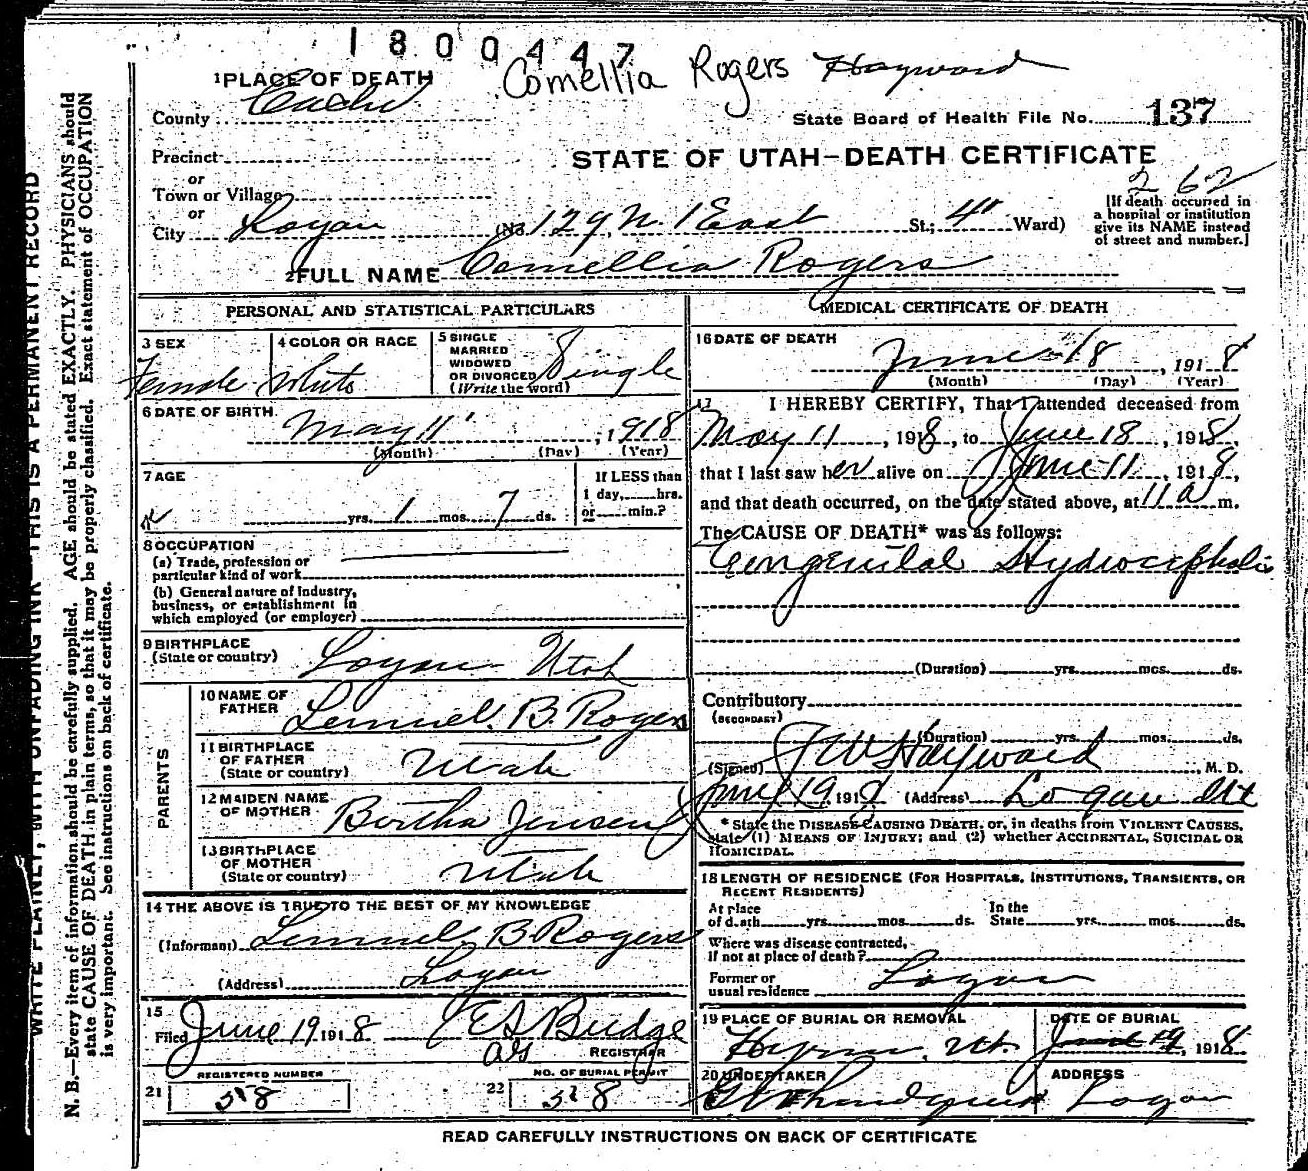 1800447
Comellia Rogers Hayward
1 PLACE OF DEATH
County Cache
State Board of Health File No. 137
Precinct
STATE OF UTAH-DEATH CERTIFICATE
or
Town or Village
262
or
City Logan (No. 129 N. 1 East St.; 4" Ward)
[If death occurred in
a hospital or institution
give its NAME instead
of street and number.]
2 FULL NAME Comellia Rogers
PERSONAL AND STATISTICAL PARTICULARS
3 SEX
Female
4 COLOR OR RACE
White
5 SINGLE
MARRIED
WIDOWED
OR DIVORCED
(Write the word)
Single
6 DATE OF BIRTH
May 11, 1918
(Month) (Day) (Year)
7 AGE
yrs. 1 mos. 7 ds.
If LESS than
1 day, hrs.
or min.?
8 OCCUPATION
(a) Trade, profession or
particular kind of work
(b) General nature of industry,
business, or establishment in
which employed (or employer)
9 BIRTHPLACE
(State or country) Logan Utah
PARENTS
10 NAME OF
FATHER Lemuel B. Rogers
11 BIRTHPLACE
OF FATHER
(State or country) Utah
12 MAIDEN NAME
OF MOTHER Bertha Jensen
13 BIRTHPLACE
OF MOTHER
(State or country) Utah
14 THE ABOVE IS TRUE TO THE BEST OF MY KNOWLEDGE
(Informant) Lemuel B Rogers
(Address) Logan
15
Filed June 19 1918 E S Budge
REGISTRAR
21 REGISTERED NUMBER
518
22 NO. OF BURIAL PERMIT
518
MEDICAL CERTIFICATE OF DEATH
16 DATE OF DEATH
June 18, 1918
(Month) (Day) (Year)
17 I HEREBY CERTIFY, That I attended deceased from
May 11, 1918, to June 18, 1918,
that I last saw her alive on June 11, 1918,
and that death occurred, on the date stated above, at 11 a m.
The CAUSE OF DEATH* was as follows:
Congenital Hydrocephalis
(Duration) yrs. mos. ds.
Contributory
(SECONDARY)
(Duration) yrs. mos. ds.
(Signed) J W Hayward, M. D.
June 19, 1918 (Address) Logan Ut
* State the DISEASE CAUSING DEATH, or, in deaths from VIOLENT CAUSES,
state (1) MEANS OF INJURY; and (2) whether ACCIDENTAL, SUICIDAL OR
HOMICIDAL.
18 LENGTH OF RESIDENCE (FOR HOSPITALS, INSTITUTIONS, TRANSIENTS, OR
RECENT RESIDENTS)
At place
of death yrs. mos. ds.
In the
State yrs. mos. ds.
Where was disease contracted,
if not at place of death?
Former or
usual residence Logan
19 PLACE OF BURIAL OR REMOVAL
Hyrum, Ut.
DATE OF BURIAL
June 19, 1918
20 UNDERTAKER
ADDRESS
Logan
READ CAREFULLY INSTRUCTIONS ON BACK OF CERTIFICATE
WRITE PLAINLY, WITH UNFADING INK—THIS IS A PERMANENT RECORD
N. B.—Every item of information should be carefully supplied. AGE should be stated EXACTLY. PHYSICIANS should
state CAUSE OF DEATH in plain terms, so that it may be properly classified. Exact statement of OCCUPATION
is very important. See instructions on back of certificate.